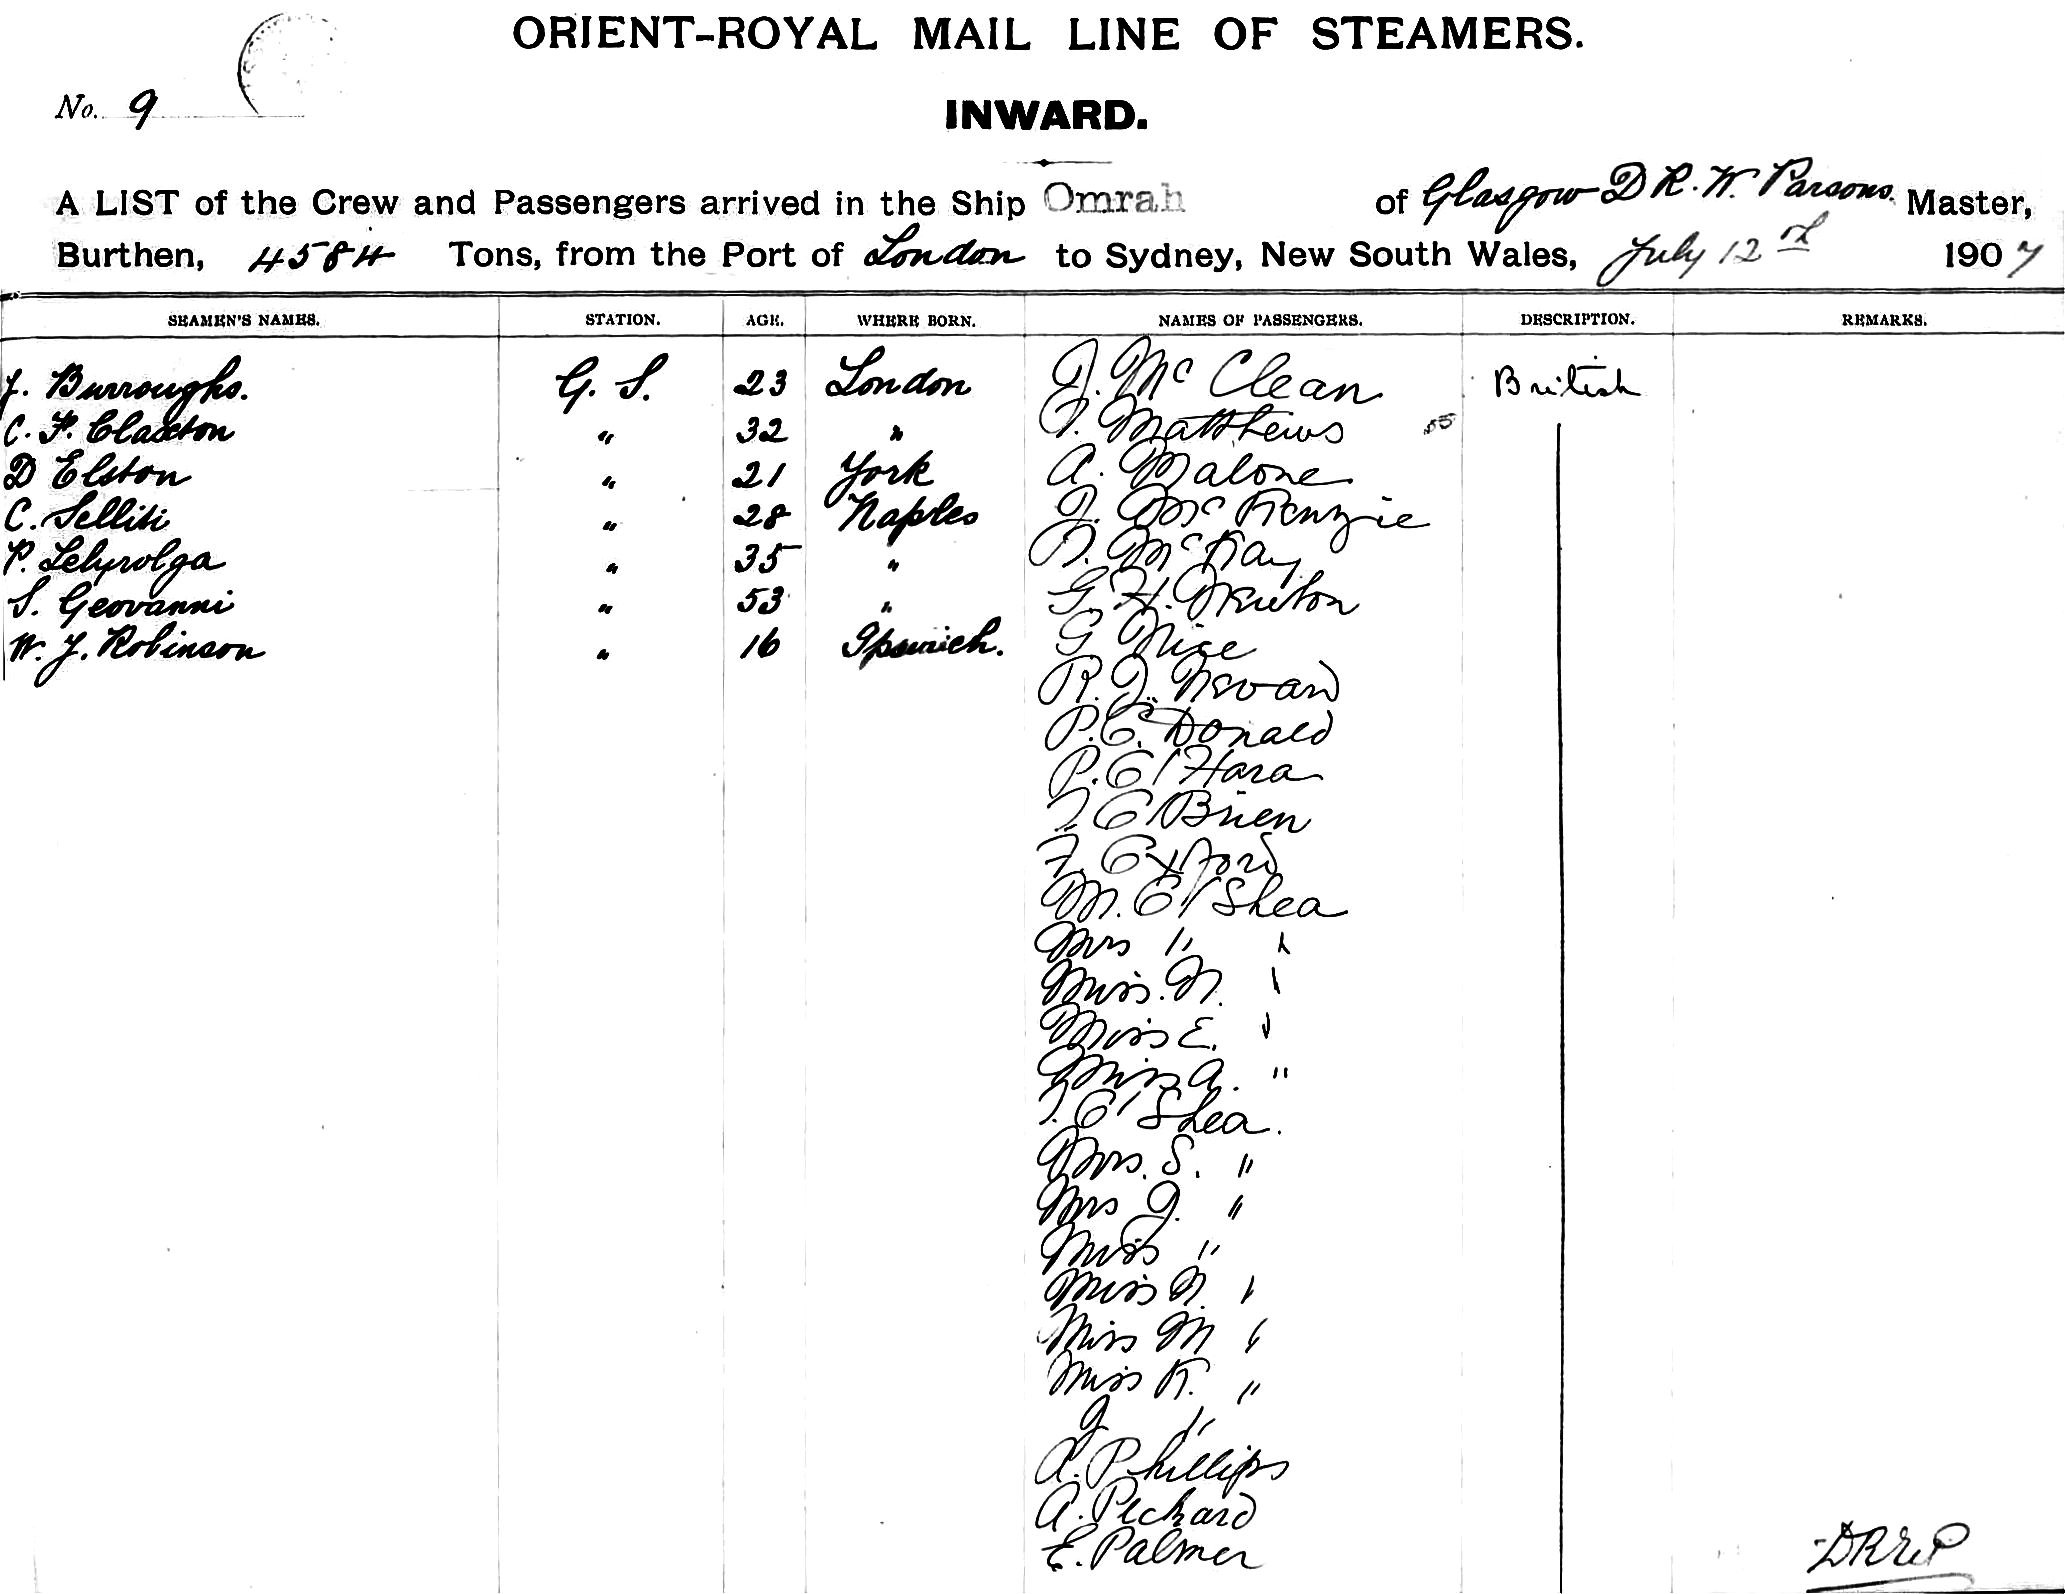 ORIENT-ROYAL MAIL LINE OF STEAMERS.
No. 9
INWARD.
A LIST of the Crew and Passengers arrived in the Ship Omrah of Glasgow D R. W. Parsons. Master,
Burthen, 4584 Tons, from the Port of London to Sydney, New South Wales, July 12th 1907
SEAMEN'S NAMES. STATION. AGE. WHERE BORN. NAMES OF PASSENGERS. DESCRIPTION. REMARKS.
J. Burroughs. G. S. 23 London J. Mc Clean British
C. F. Claxton " 32 " Matthews
D Elston " 21 York A. Malone
C. Selliti " 28 Naples J. Mc Kenzie
P. " 35 " Mc Kay
S. Geovanni " 53 " G. H. Newton
W. J. Robinson " 16 Ipswich. G Nice
R. J. Nevard
P. O. Donald
P. O'Hara
J O'Brien
F. Oxford
M. O'Shea
Mrs " "
Miss. N. "
Miss E. "
Miss A. "
J. O'Shea.
Mrs. S. "
Mrs J. "
Miss "
Miss N. "
Miss M "
Miss K. "
J "
A. Phillips
A. Pichard
E. Palmer
DRWP